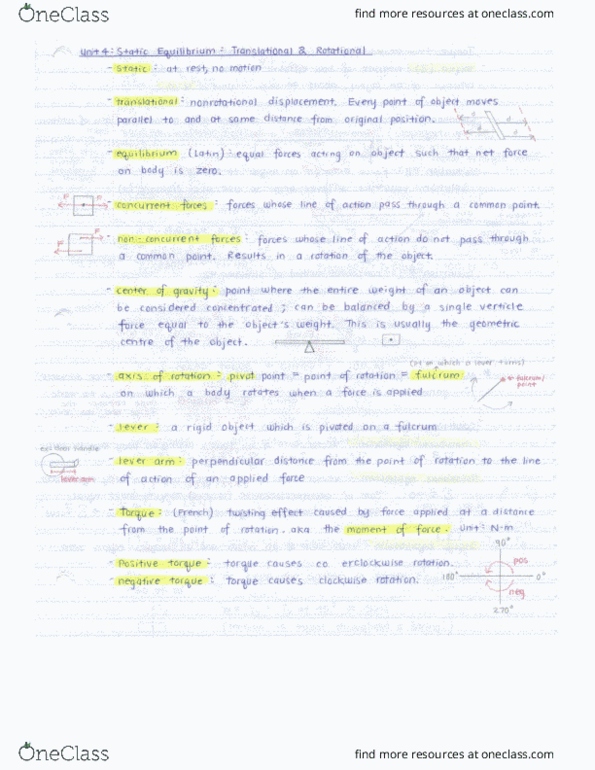 OneClass
find more resources at oneclass.com
Unit 4: Static Equilibrium: Translational & Rotational
- static: at rest, no motion
- translational: nonrotational displacement. Every point of object moves
parallel to and at same distance from original position.
d
d
- equilibrium (Latin): equal forces acting on object such that net force
on body is zero.
F
F
- concurrent forces: forces whose line of action pass through a common point.
F
F
- non-concurrent forces: forces whose line of action do not pass through
a common point. Results in a rotation of the object.
- center of gravity: point where the entire weight of an object can
be considered concentrated; can be balanced by a single verticle
force equal to the object's weight. This is usually the geometric
centre of the object.
(pt on which a lever turns)
- axis of rotation: pivot point = point of rotation = fulcrum
on which a body rotates when a force is applied
fulcrum/
point
- lever: a rigid object which is pivoted on a fulcrum
ex: door handle
lever arm
- lever arm: perpendicular distance from the point of rotation to the line
of action of an applied force
- Torque: (French) twisting effect caused by force applied at a distance
from the point of rotation. aka the moment of force. Unit: N-m
- Positive torque: torque causes co erclockwise rotation.
- negative torque: torque causes clockwise rotation.
90°
pos
180°
0°
neg
270°
OneClass
find more resources at oneclass.com